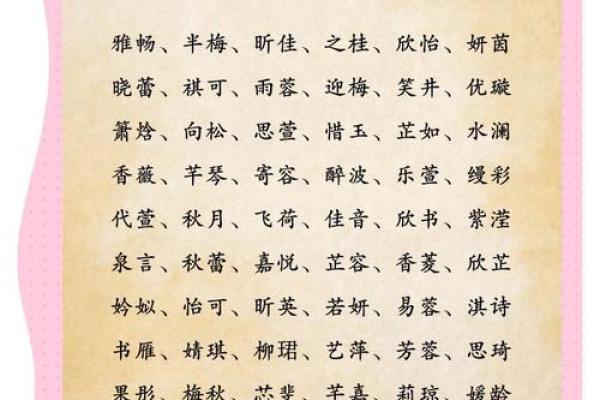 雅畅、半梅、昕佳、之桂、欣怡、妍茵
晓蕾、祺可、雨蓉、迎梅、笑井、优璇
箫焓、向松、思萱、惜玉、芷如、水澜
香薇、芊琴、寄容、醉波、乐萱、缦彩
代萱、秋月、飞荷、佳音、欣书、紫滢
泉言、秋蕾、嘉悦、芷容、香菱、欣芷
妗姒、怡可、昕英、若妍、易蓉、淇诗
书雁、婧琪、柳珺、艺萍、芳蓉、思琦
果彤、梅秋、芯斐、芊嘉、莉琼、媛龄